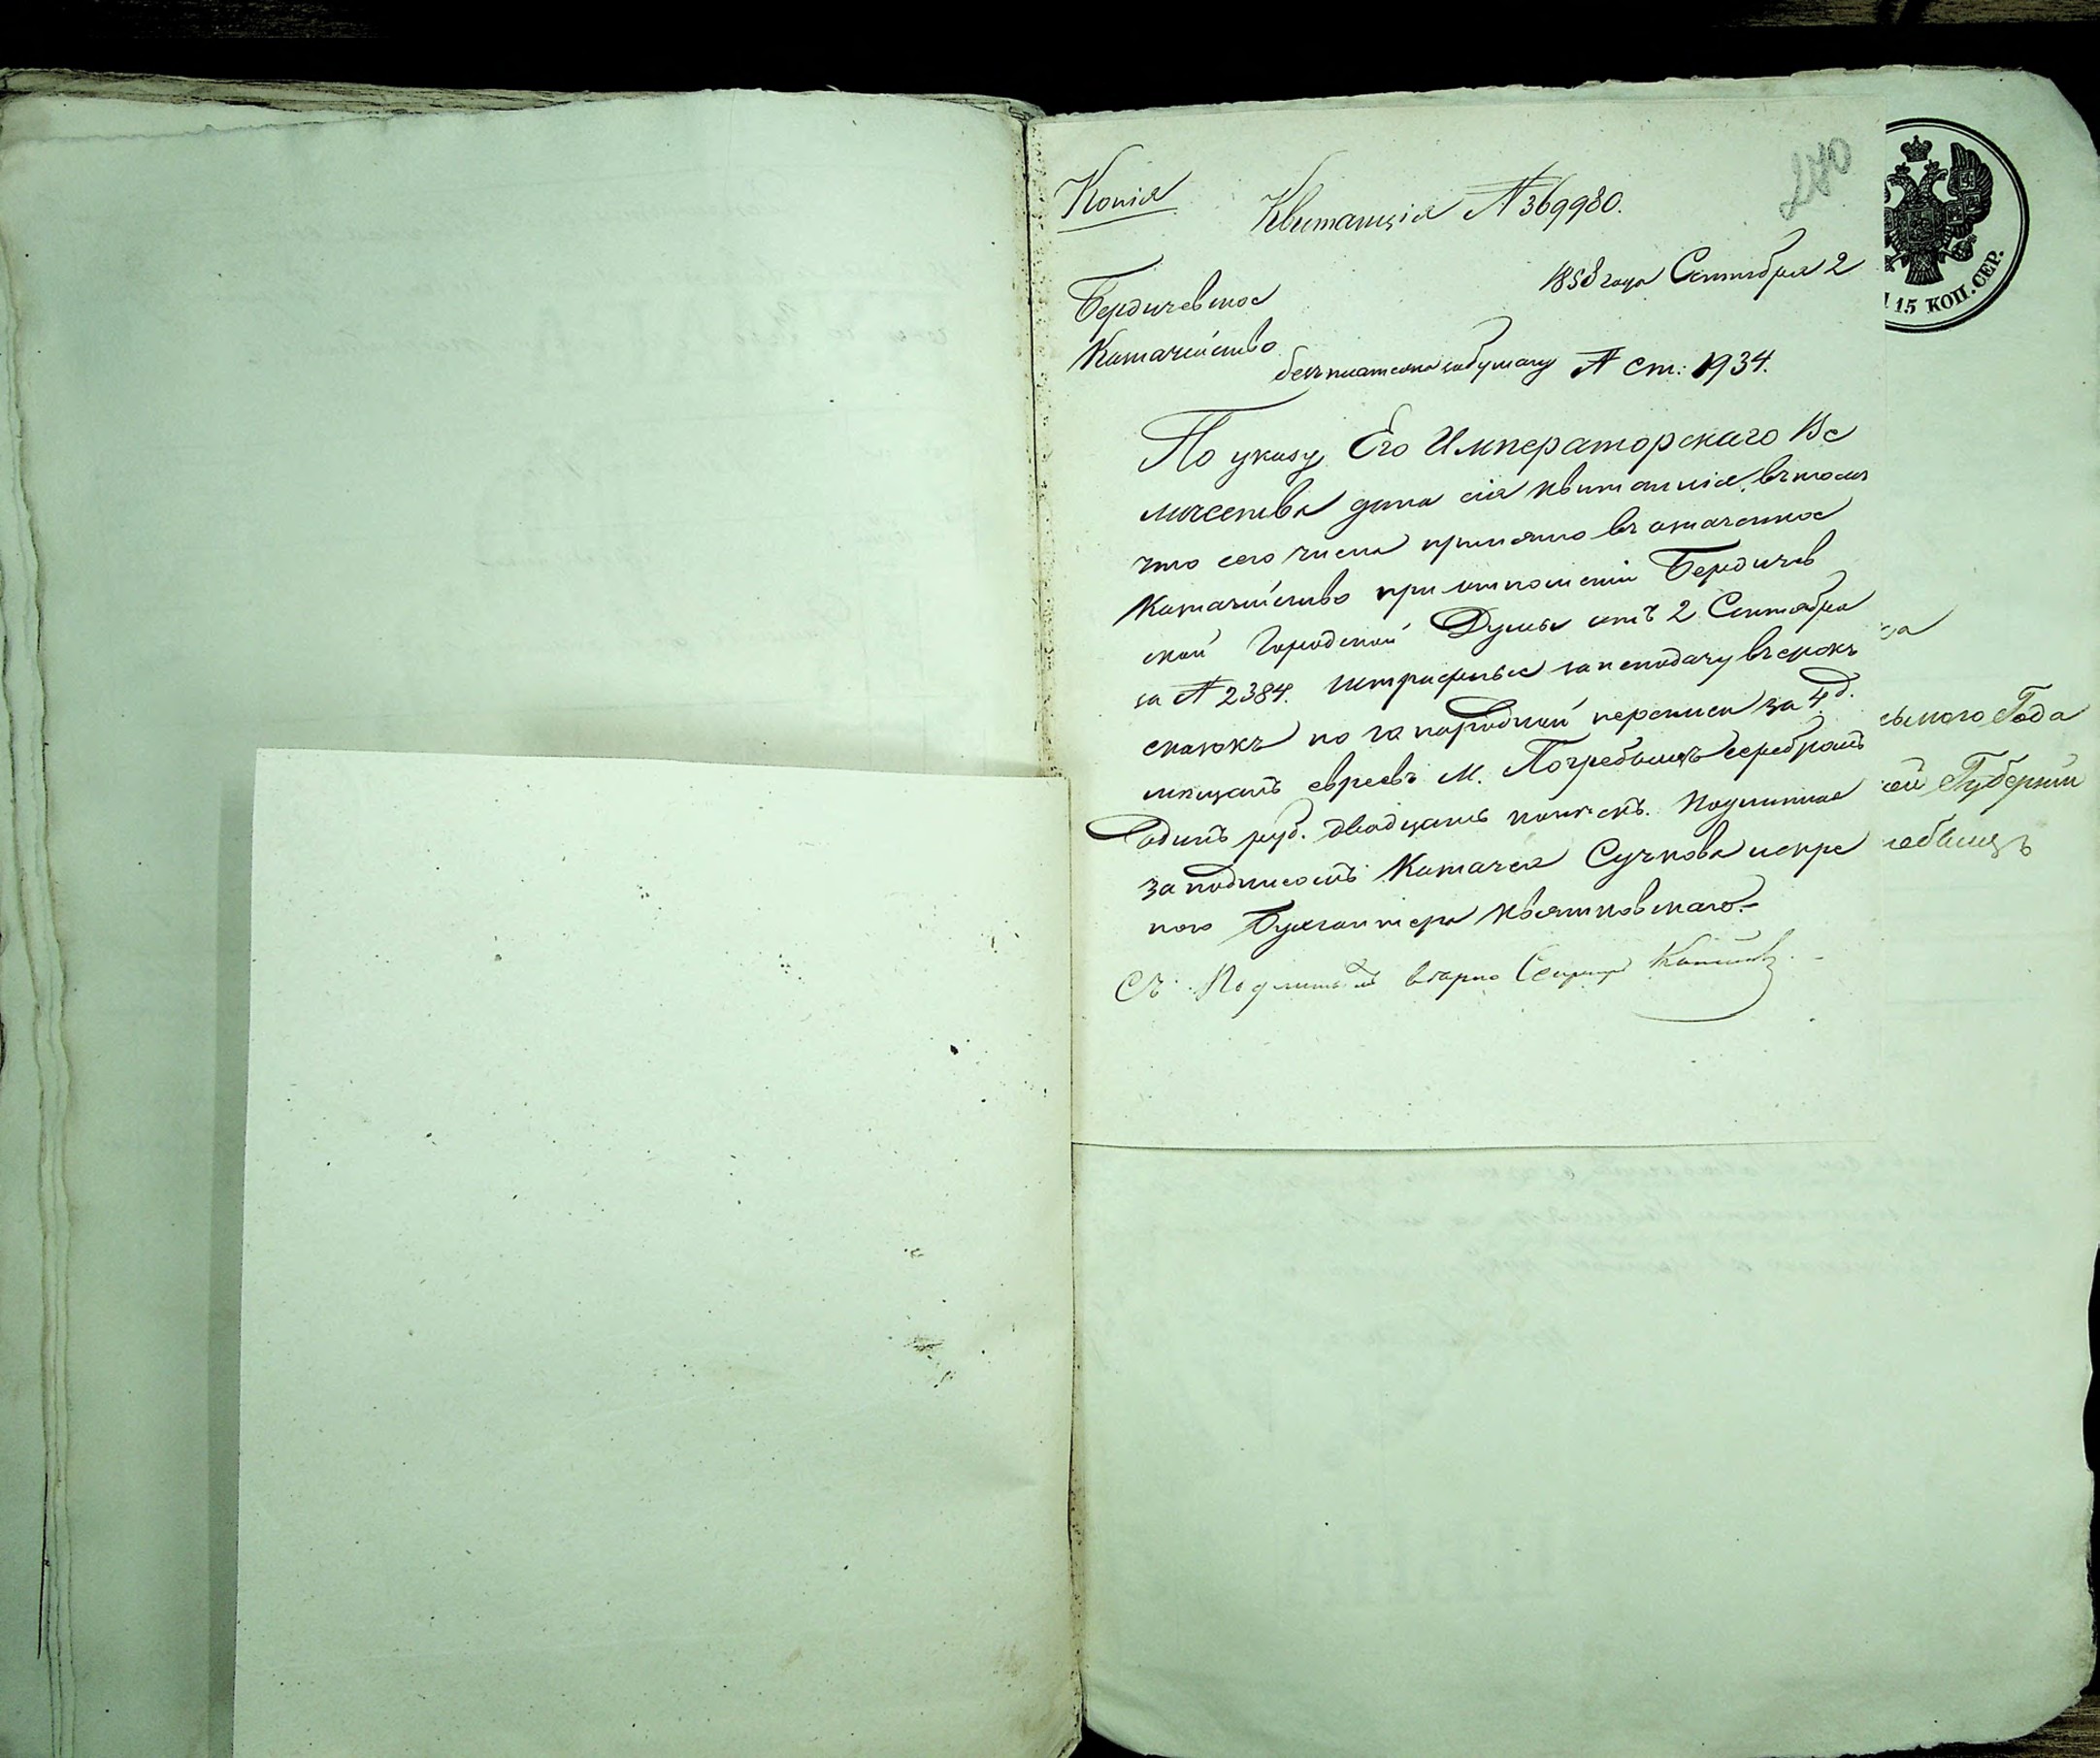 Копія
Квитанція № 369980.
240
15 КОП. СЕР.
1858 года Сентября 2
Бердичевское
Казначейство
безъ платежа за бумагу № ст: 1934.
По указу Его Императорскаго Ве
личества дана сія квитанція въ томъ
что сего числа принято въ означенное
Казначейство при отношеніи Бердичев
ской Городской Думы отъ 2 Сентября
за № 2384. штрафныхъ за неподачу въ срокъ
сказокъ по 10 народной переписи за 4 д.
мещанъ евреевъ М. Погребищъ серебромъ
одинъ руб. двадцать копѣекъ. Подлинная
за подписомъ Казначея Сучкова и скрѣ
пою Бухгалтера Квятковскаго.
Съ Подлиннымъ вѣрно
сьмого Года
ой Губерніи
ребищъ